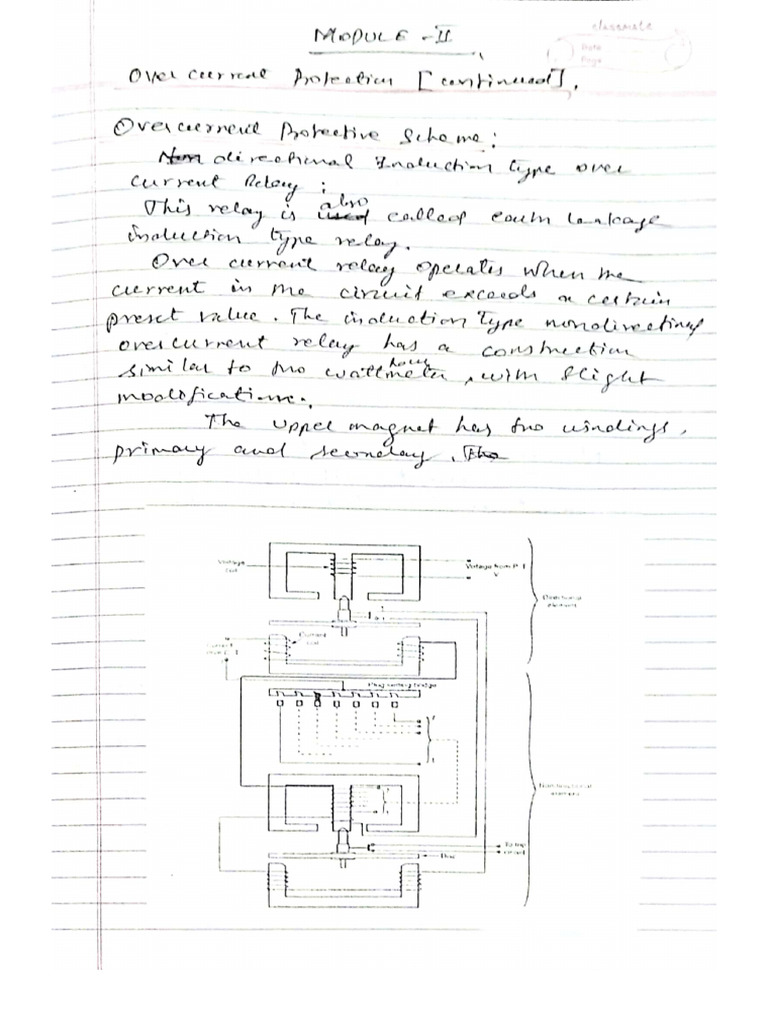 MODULE - II
classmate
Date
Page
Over current Protection [continued].
Overcurrent Protective Scheme:
Non directional Induction type over
current Relay:
This relay is used also called earth leakage
induction type relay.
Over current relay operates when the
current in the circuit exceeds a certain
preset value. The induction type nondirectional
overcurrent relay has a construction
similar to the watt hour meter, with slight
modifications.
The upper magnet has two windings,
primary and secondary. The
Voltage
coil
Voltage from P.T
V
Directional
element
Current
coil
Plug setting bridge
Non directional
element
To trip
circuit
Disc